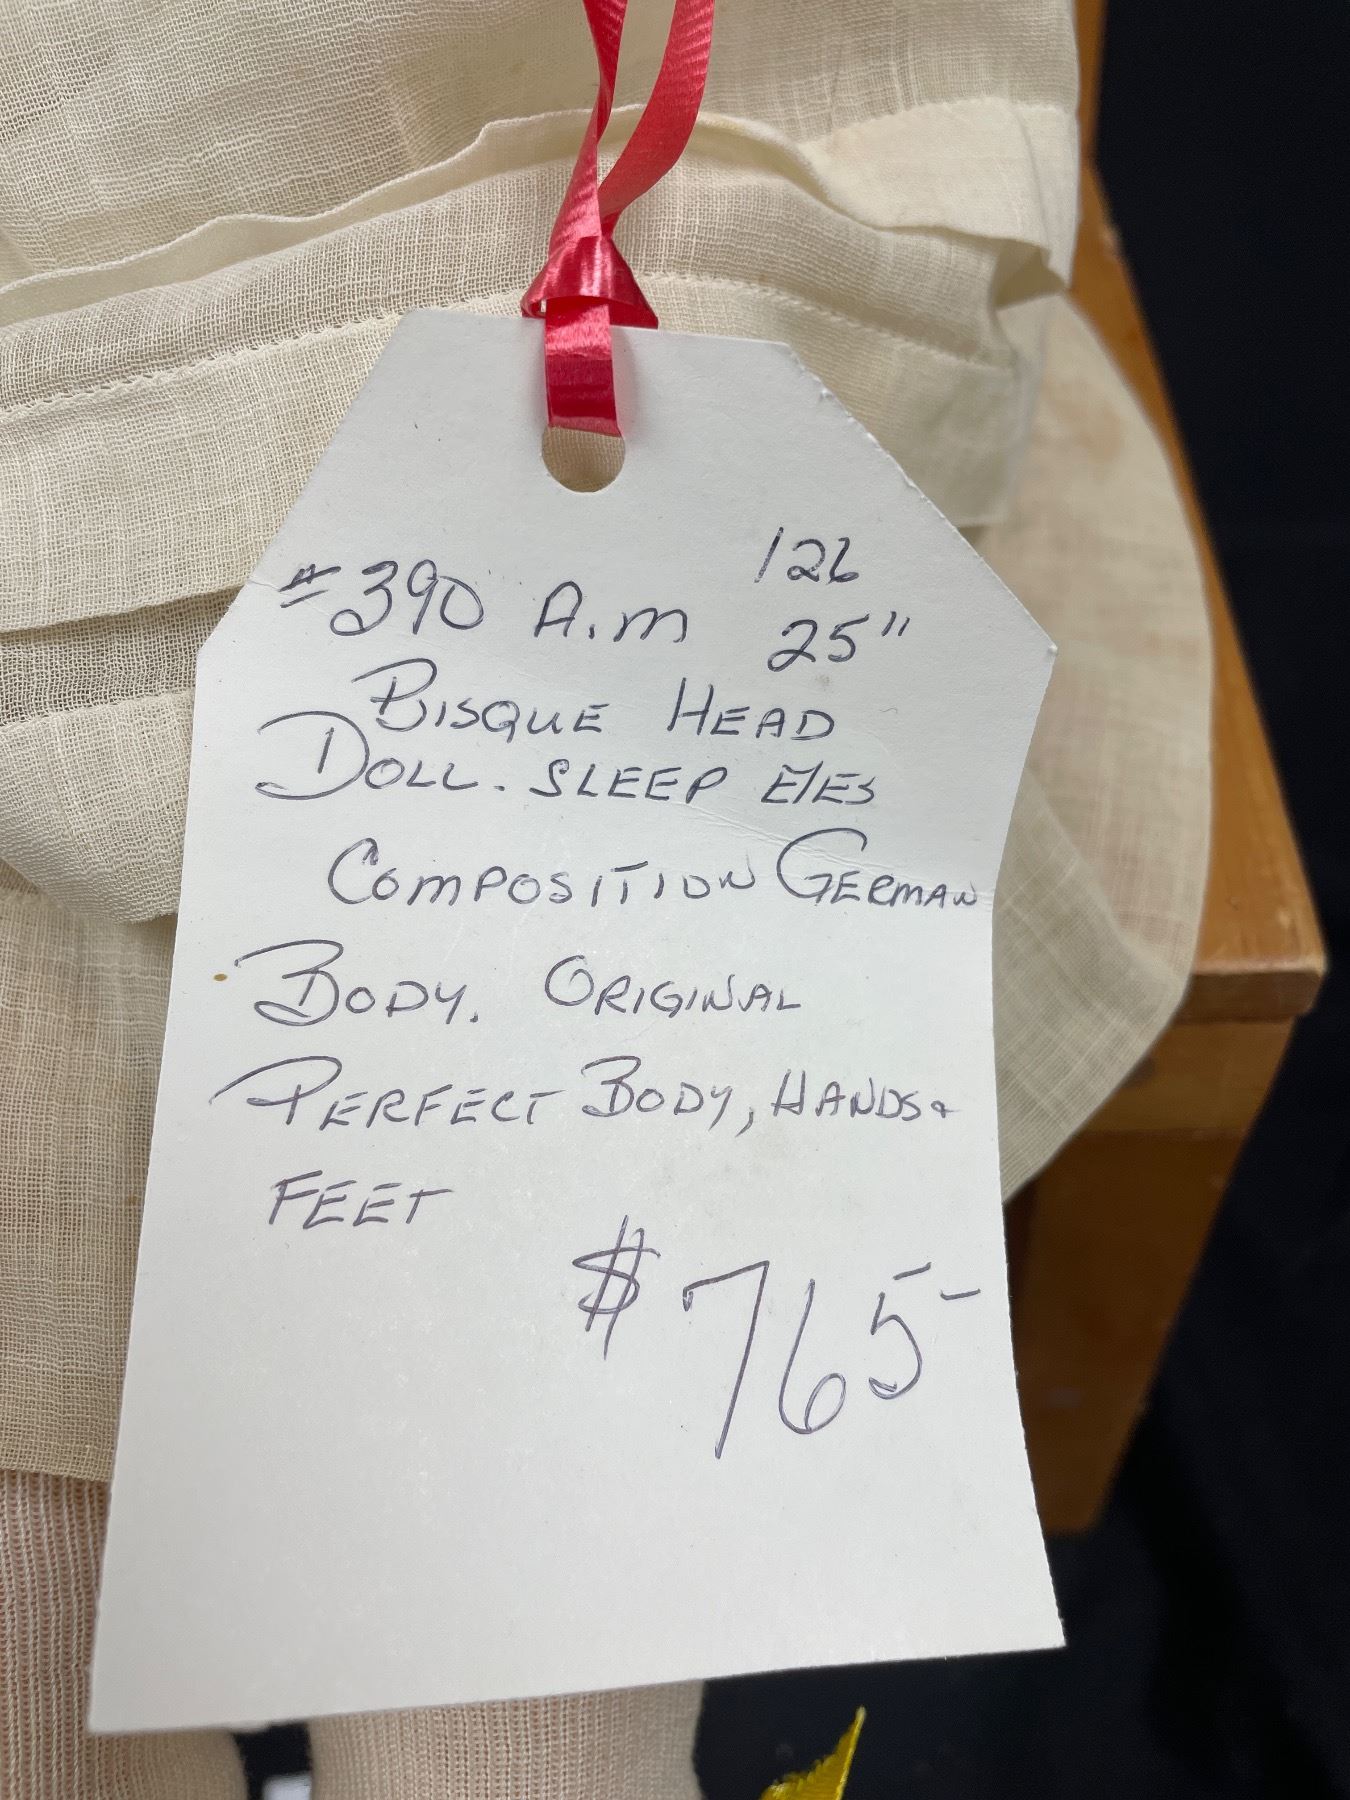 126
#390 A.M 25"
BISQUE HEAD
DOLL. SLEEP EYES
COMPOSITION GERMAN
BODY. ORIGINAL
PERFECT BODY, HANDS &
FEET
$765-